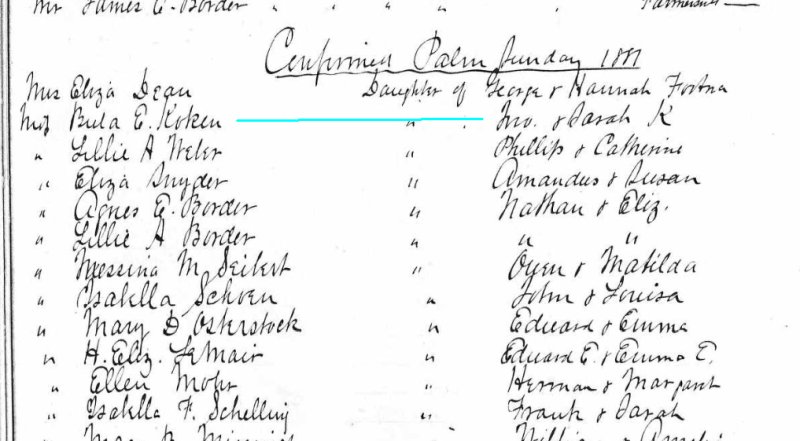 Mr James E. Border " " " "
Confirmed Palm Sunday 1881
Mrs Eliza Dean Daughter of George & Hannah
Miss Bula E. Koken " Jno. & Sarah K
" Lillie A Weler " Phillip & Catherine
" Eliza Snyder " Amandus & Susan
" Agnes E. Border " Nathan & Eliz.
" Lillie A Border " " "
" Messina M. Seibert " Owen & Matilda
" Isabella Schoen " John & Louisa
" Mary D Osterstock " Edward & Emma
" H. Eliz. LeMair " Edward E. & Emma E.
" Ellen Mohr " Herman & Margaret
" Isabella F. Schelling " Frank & Sarah
" William &